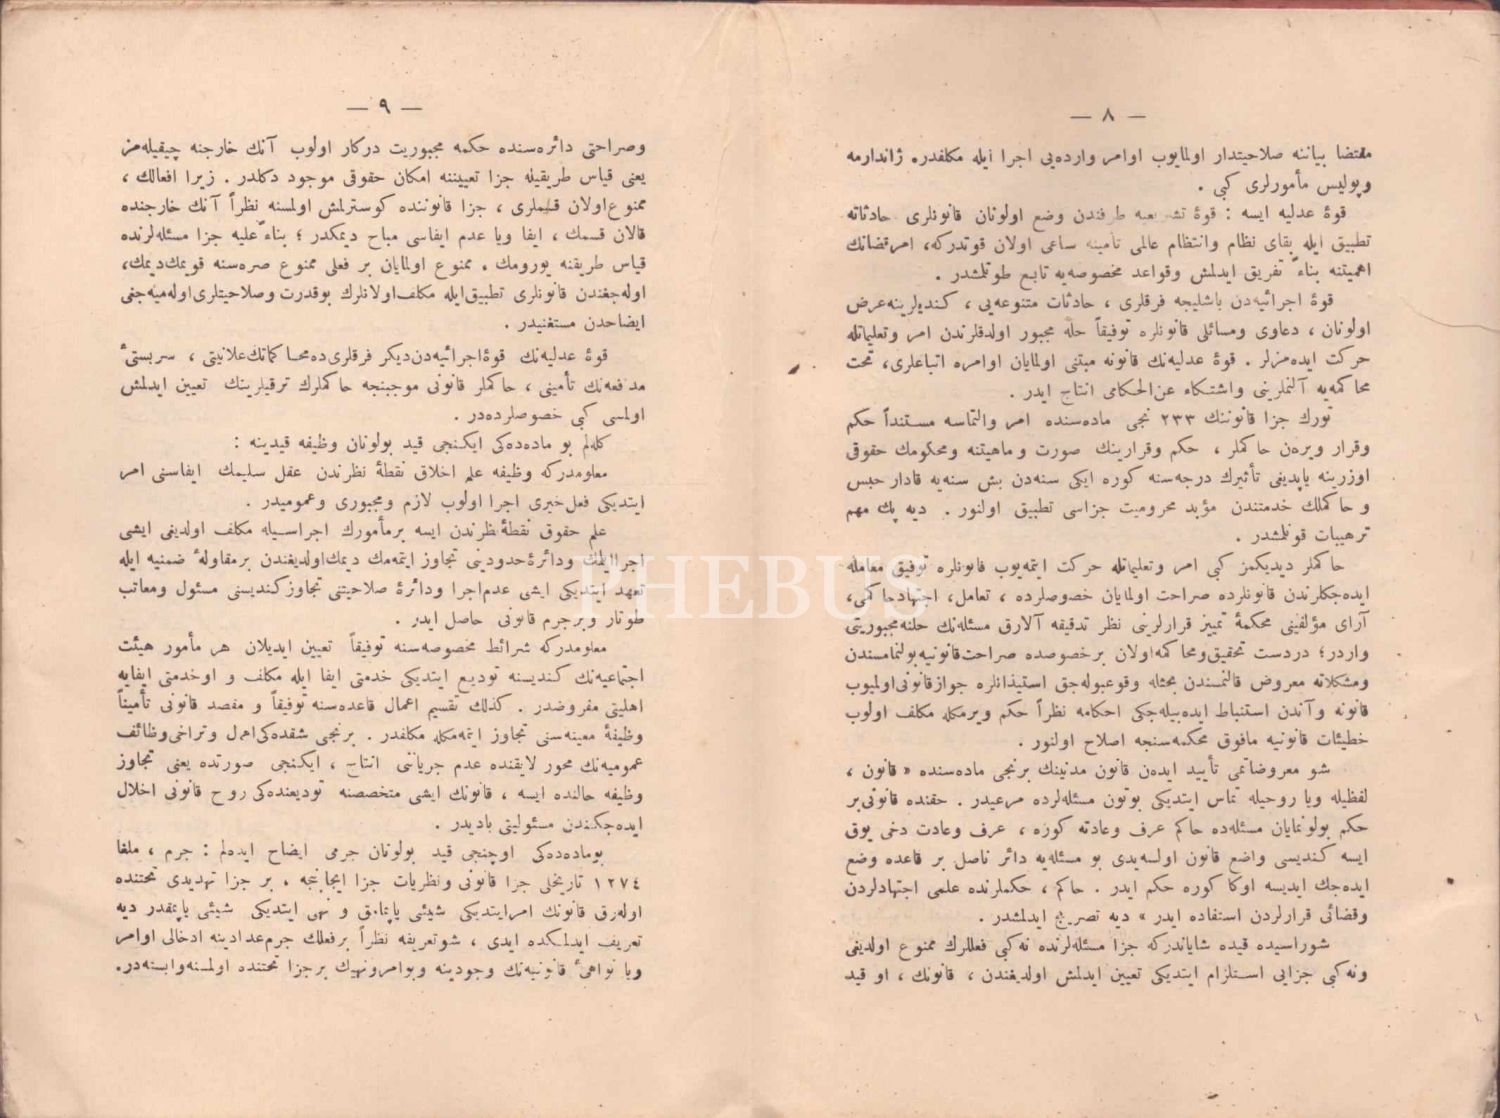 — ٨ —
مقتضا بياننه صلاحيتدار اولمايوب اوامر وارده‌يى اجرا ايله مكلفدر. ژاندارمه
وپوليس مأمورلرى كبى .
قوۀ عدليه ايسه : قوۀ تشريعيه طرفندن وضع اولونان قانونلرى حادثاته
تطبيق ايله بقاى نظام وانتظام عالمى تأمينه ساعى اولان قوتدركه، امر قضانك
اهميتنه بناءً تفريق ايدلمش وقواعد مخصوصه‌يه تابع طوتلمشدر .
قوۀ اجرائيه‌دن باشليجه فرقلرى ، حادثات متنوعه‌يى ، كنديلرينه عرض
اولونان ، دعاوى ومسائلى قانونلره توفيقاً حله مجبور اولدقلرندن امر وتعليماتله
حركت ايده‌مزلر . قوۀ عدليه‌نك قانونه مبتنى اولمايان اوامره اتباعلرى، تحت
محاكمه‌يه آلنملرينى واشتكاء عن‌الحكامى انتاج ايدر .
تورك جزا قانوننك ٢٣٣ نجى ماده‌سنده امر والتماسه مستنداً حكم
وقرار ويره‌ن حاكملر ، حكم وقرارينك صورت وماهيتنه ومحكومك حقوقى
اوزرينه ياپديغى تأثيرك درجه‌سنه كوره ايكى سنه‌دن بش سنه‌يه قادار حبس
و حاكملك خدمتندن مؤبد محروميت جزاسى تطبيق اولنور . ديه پك مهم
ترهيبات قونلمشدر .
حاكملر ديديكمز كبى امر وتعليماتله حركت ايتمه‌يوب قانونلره توفيق معامله
ايده‌جكلرندن قانونلرده صراحت اولمايان خصوصلرده ، تعامل، اجتهاد حاكمى،
آراى مؤلفينى محكمۀ تمييز قرارلرينى نظر تدقيقه آلارق مسئله‌نك حلنه مجبوريتى
واردر؛ دردست تحقيق ومحاكمه اولان بر خصوصده صراحت قانونيه بولنمامسندن
ومشكلاته معروض قالنمسندن بحثله وقوعبوله‌جق استيذانلره جواز قانونى اولميوب
قانونه وآندن استنباط ايده‌بيله‌جكى احكامه نظراً حكم ويرمكله مكلف اولوب
خطيئات قانونيه مافوق محكمه‌سنجه اصلاح اولنور .
شو معروضاتمى تأييد ايده‌ن قانون مدنينك برنجى ماده‌سنده « قانون ،
لفظيله ويا روحيله تماس ايتديكى بوتون مسئله‌لرده مرعيدر . حقنده قانونى بر
حكم بولونمايان مسئله‌ده حاكم عرف وعادته كوره ، عرف وعادت دخى يوق
ايسه كنديسى واضع قانون اولسه‌يدى بو مسئله‌يه دائر ناصل بر قاعده وضع
ايده‌جك ايديسه اوكا كوره حكم ايدر . حاكم ، حكملرنده علمى اجتهادلردن
وقضائى قرارلردن استفاده ايدر » ديه تصريح ايدلمشدر .
شوراسيده قيده شاياندركه جزا مسئله‌لرنده نه‌كبى فعللرك ممنوع اولديغى
ونه‌كبى جزايى استلزام ايتديكى تعيين ايدلمش اولديغندن ، قانونك ، او قيد
— ٩ —
وصراحتى دائره‌سنده حكمه مجبوريت دركار اولوب آنك خارجنه چيقيله‌مز
يعنى قياس طريقيله جزا تعييننه امكان حقوقى موجود دكلدر . زيرا افعالك ،
ممنوع اولان قسملرى ، جزا قانوننده كوسترلمش اولمسنه نظراً آنك خارجنده
قالان قسمك ، ايفا ويا عدم ايفاسى مباح ديمكدر ؛ بناءًعليه جزا مسئله‌لرنده
قياس طريقنه يورومك . ممنوع اولمايان بر فعلى ممنوع صره‌سنه قويمك ديمك،
اوله‌جغندن قانونلرى تطبيق ايله مكلف اولانلرك بو قدرت وصلاحيتلرى اوله‌ميه‌جغى
ايضاحدن مستغنيدر .
قوۀ عدليه‌نك قوۀ اجرائيه‌دن ديكر فرقلرى ده محاكماتك علانيتى ، سربستئ
مدافعه‌نك تأمينى ، حاكملر قانونى موجبنجه حاكملرك ترقيلرينك تعيين ايدلمش
اولمسى كبى خصوصلرده‌در .
كله‌لم بو ماده‌ده‌كى ايكنجى قيد بولونان وظيفه قيدينه :
معلومدركه وظيفه علم اخلاق نقطۀ نظرندن عقل سليمك ايفاسنى امر
ايتديكى فعل خيرى اجرا اولوب لازم ومجبورى وعموميدر .
علم حقوق نقطۀ نظرندن ايسه بر مأمورك اجراسيله مكلف اولديغى ايشى
اجرا ايلمك ودائرۀ حدودينى تجاوز ايتمه‌مك ديمك اولديغندن بر مقاولۀ ضمنيه ايله
تعهد ايتديكى ايشى عدم اجرا ودائرۀ صلاحيتنى تجاوز كنديسنى مسئول ومعاتب
طوتار وبر جرم قانونى حاصل ايدر .
معلومدركه شرائط مخصوصه‌سنه توفيقاً تعيين ايديلان هر مأمور هيئت
اجتماعيه‌نك كنديسنه توديع ايتديكى خدمتى ايفا ايله مكلف و او خدمتى ايفايه
اهليتى مفروضدر . كذلك تقسيم اعمال قاعده‌سنه توفيقاً و مقصد قانونى تأميناً
وظيفۀ معينه‌سنى تجاوز ايتمه‌مكله مكلفدر . برنجى شقده‌كى اهمال وتراخى وظائف
عموميه‌نك محور لايقنده عدم جرياننى انتاج ، ايكنجى صورتده يعنى تجاوز
وظيفه حالنده ايسه ، قانونك ايشى متخصصنه توديعنده‌كى روح قانونى اخلال
ايده‌جكندن مسئوليتى باديدر .
بو ماده‌ده‌كى اوچنجى قيد بولونان جرمى ايضاح ايده‌لم : جرم ، ملغا
١٢٧٤ تاريخلى جزا قانونى ونظريات جزا ايجابنجه ، بر جزا تهديدى تحتنده
اوله‌رق قانونك امر ايتديكى شيئى ياپمامق و نهى ايتديكى شيئى ياپمقدر ديه
تعريف ايدلمكده ايدى ، شو تعريفه نظراً بر فعلك جرم عدادينه ادخالى اوامر
ويا نواهئ قانونيه‌نك وجودينه وبو امر ونهيك بر جزا تحتنده اولمسنه وابسته‌در.
PHEBUS